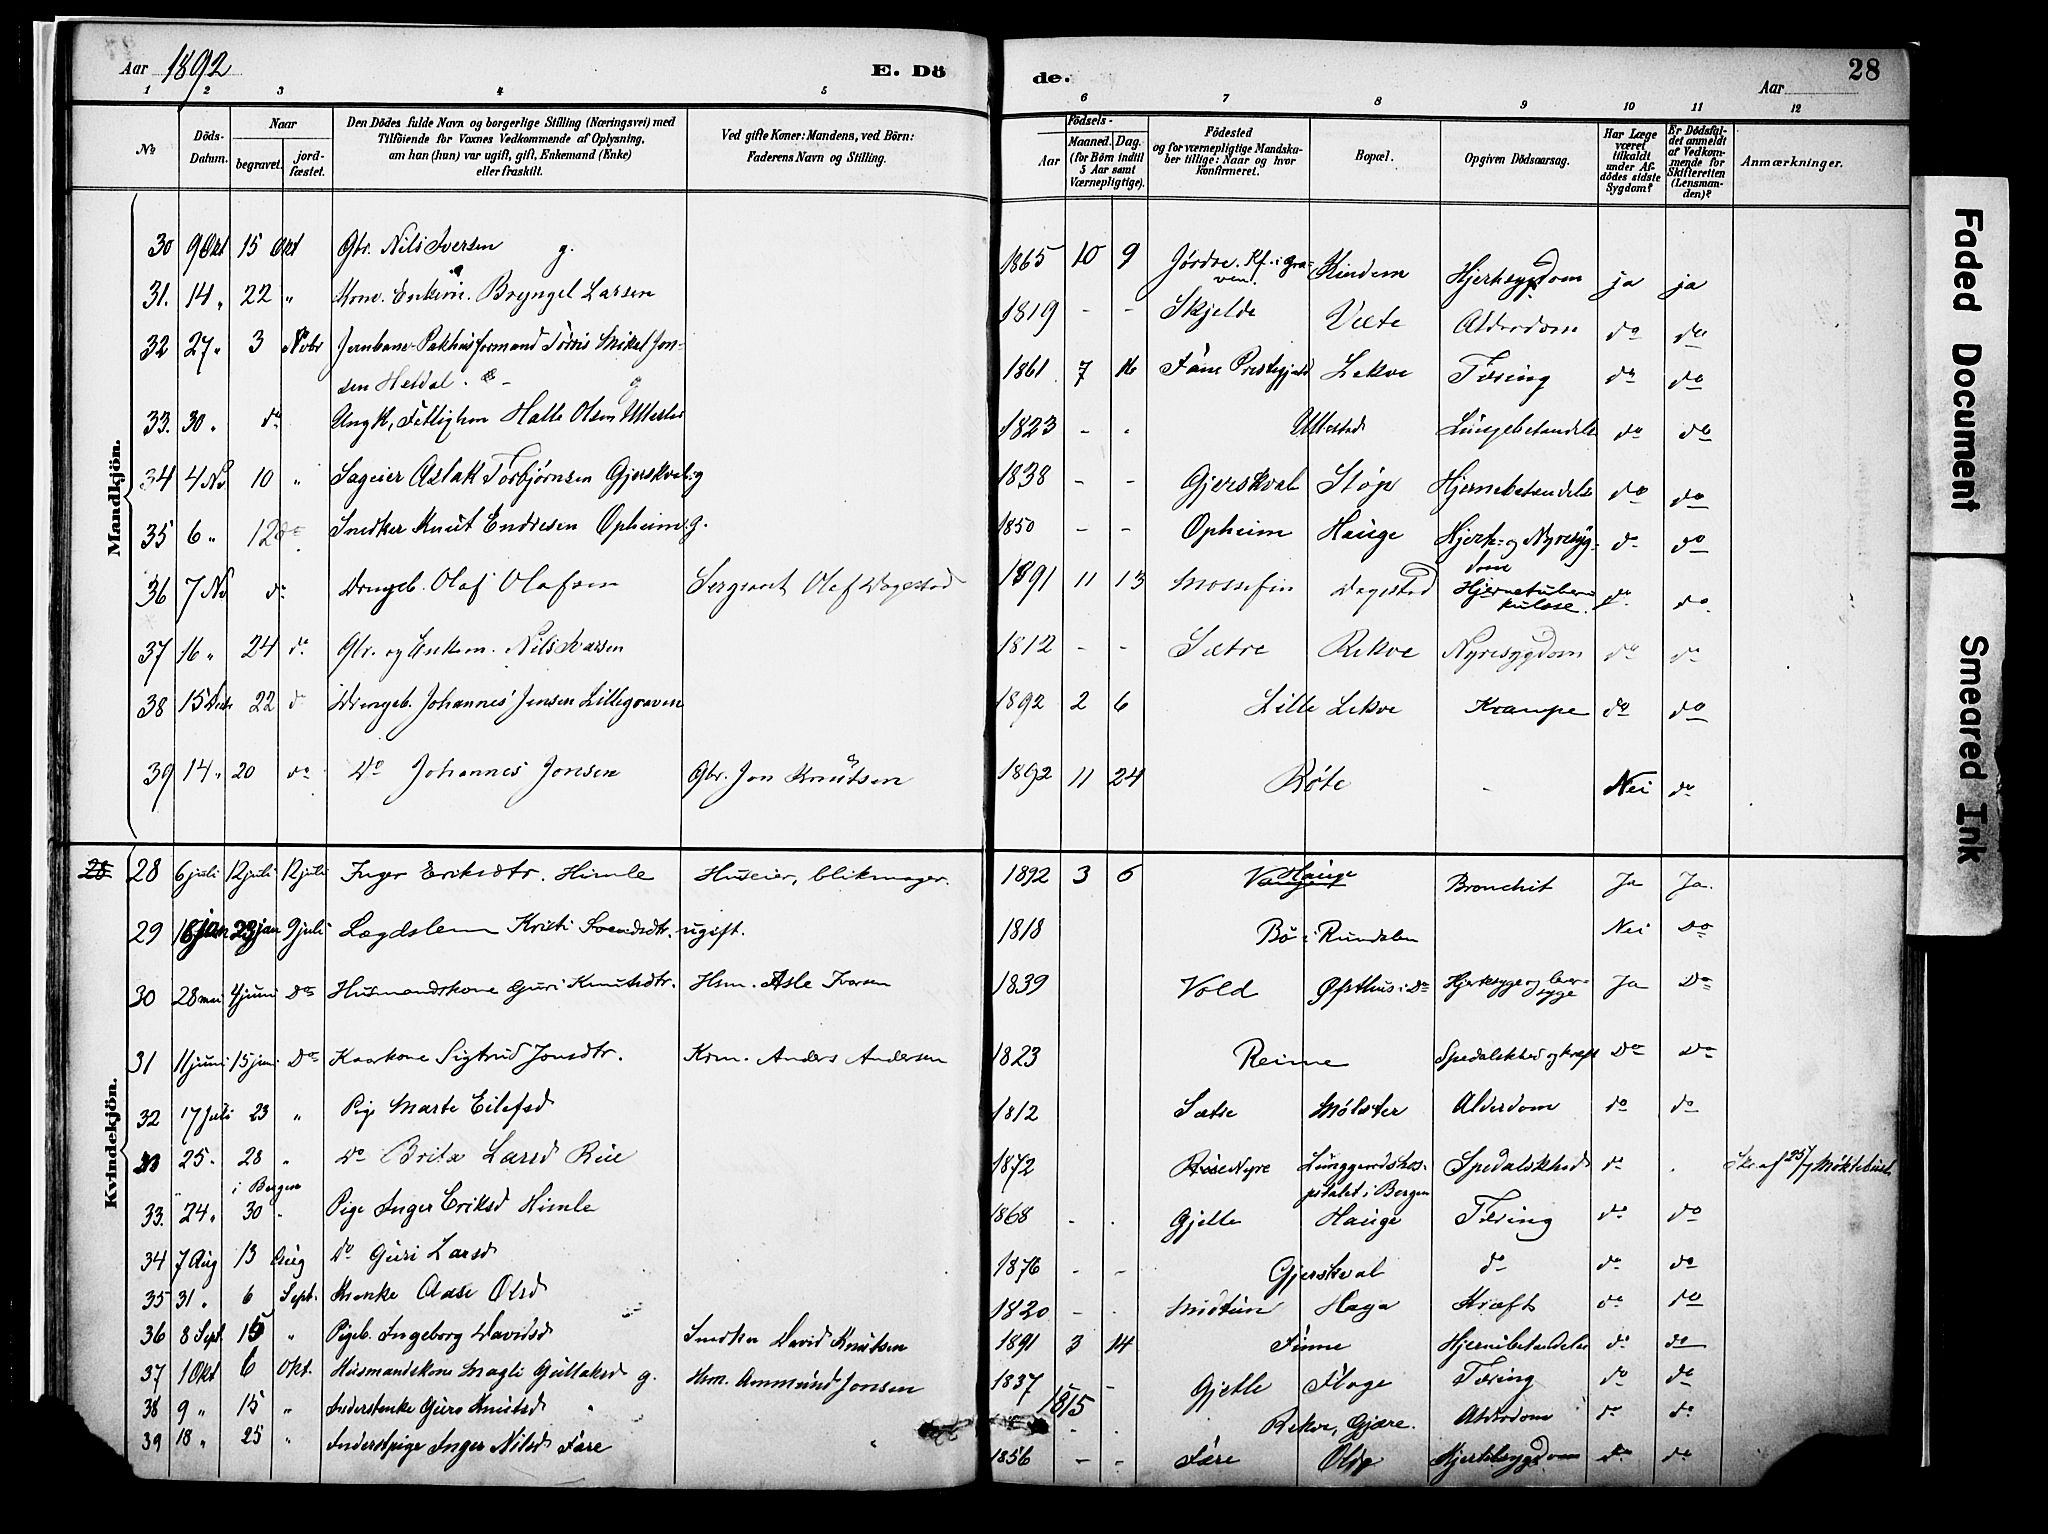 Aar 1892 E. Dö de. Aar 28
1 2 3 4 5 6 7 8 9 10 11 12
No Döds-Datum. Naar begravet. jord-fæstet. Den Dödes fulde Navn og borgerlige Stilling (Næringsvei) med Tilföiende for Voxnes Vedkommende af Oplysning, om han (hun) var ugift, gift, Enkemand (Enke) eller fraskilt. Ved gifte Koner: Mandens, ved Börn: Faderens Navn og Stilling. Födsels- Aar Maaned. Dag. (for Börn indtil 5 Aar samt Værnepligtige). Födested og for værnepligtige Mandskaber tillige: Naar og hvor konfirmeret. Bopæl. Opgiven Dödsaarsag. Har Læge været tilkaldt under Afdödes sidste Sygdom? Er Dödsfaldet anmeldt af Vedkommende for Skifteretten (Lensmanden)? Anmærkninger.
Mandkjön.
30 9 Okt 15 Okt Gbr. Nils Iversen g. 1865 10 9 Jørdre. Kf. i Graven. Kindem Hjertesygdom ja ja
31. 14 " 22 " Kom. Enkem. Bryngel Larsen 1819 - - Skjelde Væte Alderdom do do
32 27 " 3 Novbr Jernbane-Pakhusformand Tørris Mikel Jonsen Heldal. g 1861 7 16 Fane Prestegjeld Lekve Tæring do do
33. 30 " do Ungk, Fattiglem Halle Olsen Ullestad 1823 - - Ullestad Lungebetændelse do do
34 4 Nov 10 " Sageier Aslak Torbjørnsen Gjerskval g 1838 - - Gjerskval Støje Hjernebetændelse do do
35 6 " 12 do Snedker Knut Endresen Opheim g. 1850 - - Opheim Hauge Hjerte- og Nyresygdom do do
36 7 Nov do Drengeb. Olaf Olafsen Sergeant Olaf Dagestad 1891 11 13 Mossefin Dagestad Hjernetuberkulose. do do
37 16 " 24 do Gbr. og Enkem. Nils Ivarsen 1812 - - Sætre Rekve Nyresygdom do do
38 15 Decbr 22 do Drengeb. Johannes Jensen Lillegraven 1892 2 6 Lille Lekve Krampe do do
39 14 " 20 do Do Johannes Jonsen Gbr. Jon Knutsen 1892 11 24 Røte - Nei do
Kvindekjön.
28 28 6 juli 12 juli 12 juli Inger Eriksdtr. Himle Huseier, blikmager. 1892 3 6 Vangen Hauge Bronchit Ja Ja.
29 18 jan 23 jan 9 juli Lægdslem Kristi Svendsdtr. ugift. 1818 Bø i Rundalen Nei Do
30 28 mai 4 juni Do Husmandskone Guri Knutsdtr. Hsm. Asle Ivarsen 1839 Vold Øfsthus i Do Hjertesyge og leversyge Ja Do
31 11 juni 15 juni Do Kaarkone Sigtrud Jonsdtr. Krm. Anders Andersen 1823 Reime Spedalskhed og kræft Do Do
32 17 Juli 23 " Pige Marte Eilefsd 1812 Sætre Mølster Alderdom do do
33 25 " 28 " i Bergen Do Brita Larsd Rue 1872 Nyre Lungegaardshospitalet i Bergen Spedalskhed do
33. 24 " 30 " Pige Inger Eriksd Himle 1868 - - Gjelle Hauge Tæring do do
34 7 Aug 13 Aug Do Guri Larsd 1876 - - Gjerskval do do do
35 31 " 6 Sept. Kaarenke Aase Olsd 1820 - - Midtun Haga Kræft do do
36 8 Sept 15 " Pigeb. Ingeborg Davidsd Snedker David Knutsen 1891 3 14 Finne Hjernebetændelse do do
37 1 Okt 6 Okt. Husmandskone Magli Gullaksd g. Hsm. Ammund Jonsen 1837 - Gjelle Flage Tæring do do
38 9 " 15 " Inderstenke Guro Knutsd 1815 - - Rekve, Gjære. Alderdom do do
39 18 " 25 " Inderstpige Inger Nilsd Føre 1856 - - Føre Hjertesygdom do do
Faded Document
Smeared Ink